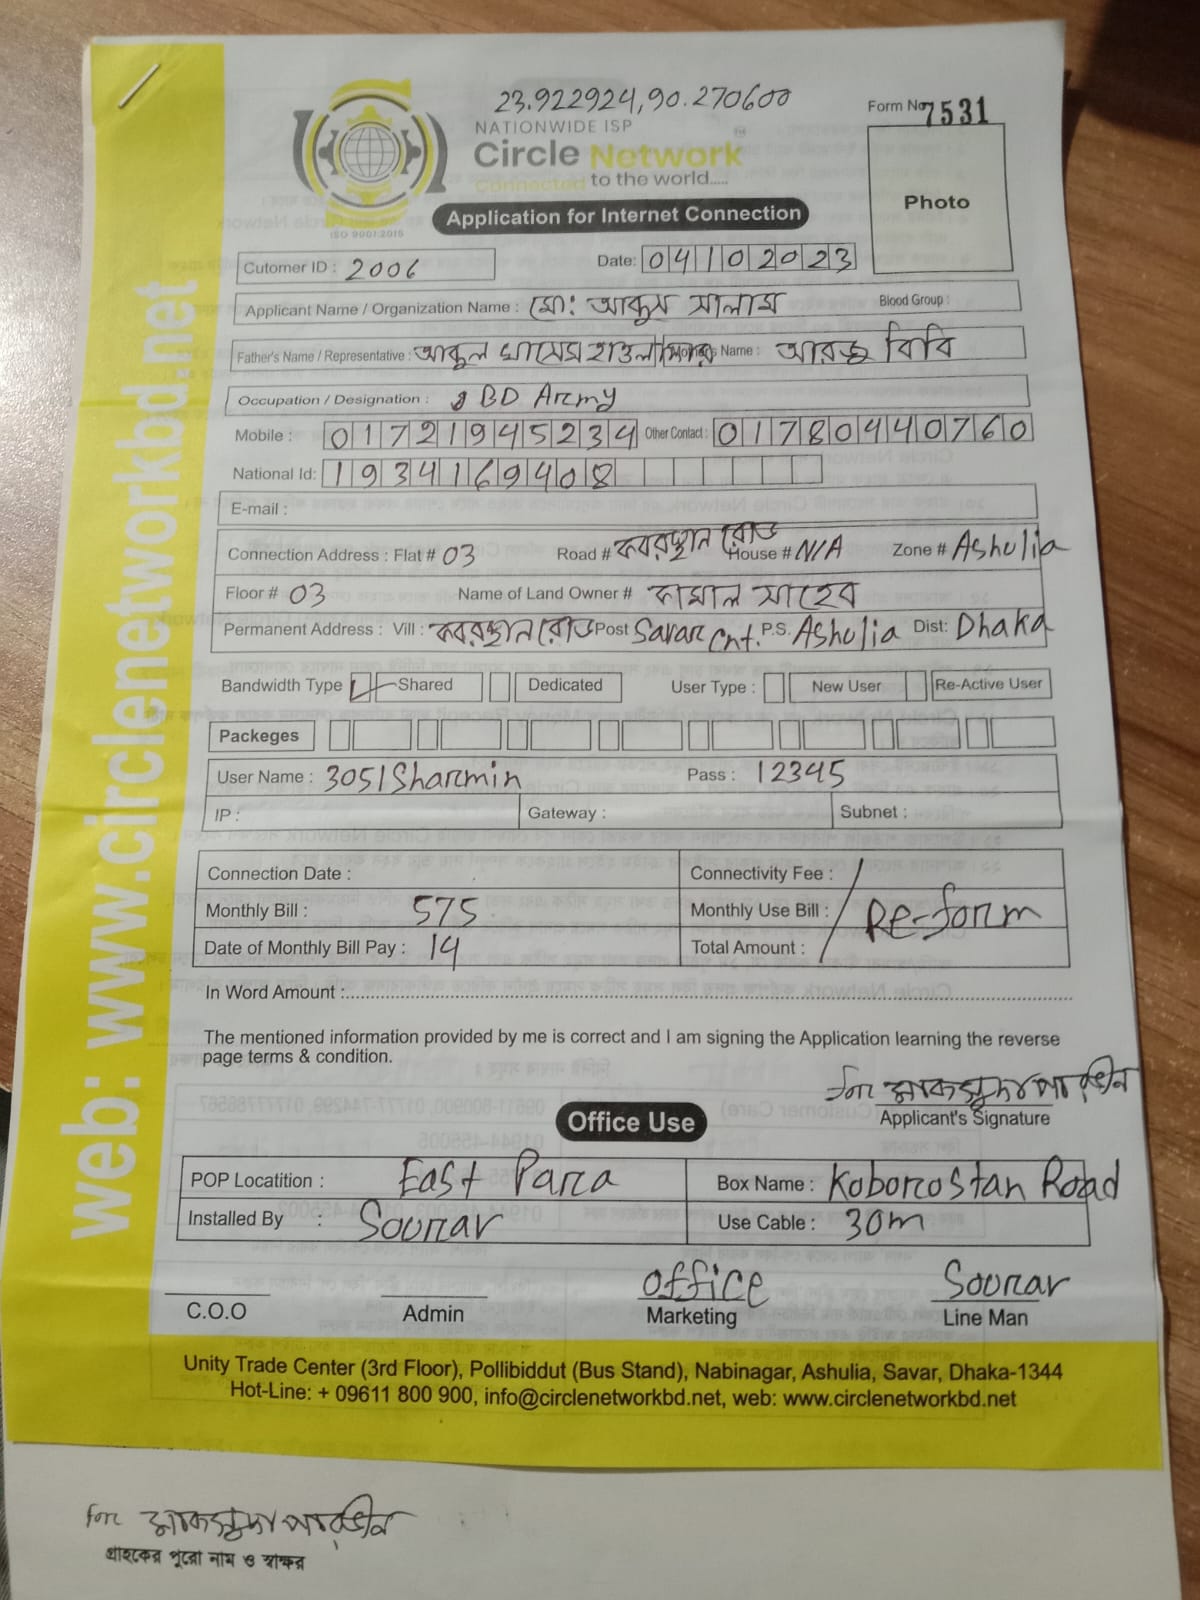 23.922924,90.270600
Form No 7531
NATIONWIDE ISP
Circle Network TM
Connected to the world.....
ISO 9001:2015
Photo
Application for Internet Connection
Cutomer ID : 2006 Date: 04102023
Applicant Name / Organization Name : মো: আব্দুস সালাম Blood Group :
Father's Name / Representative : আবুল হাওলাদার Mother's Name : আরজু বিবি
Occupation / Designation : BD Army
Mobile : 01721945234 Other Contact : 01780440760
National Id: 1934169408
E-mail :
Connection Address : Flat # 03 Road # কবরস্থান রোড House # N/A Zone # Ashulia
Floor # 03 Name of Land Owner # কামাল সাহেব
Permanent Address : Vill : কবরস্থান রোড Post Savar Cnt. P.S. Ashulia Dist: Dhaka
Bandwidth Type Shared Dedicated User Type : New User Re-Active User
Packeges
User Name : 3051Sharmin Pass : 12345
IP : Gateway : Subnet :
Connection Date : Connectivity Fee :
Monthly Bill : 575 Monthly Use Bill : Re-form
Date of Monthly Bill Pay : 14 Total Amount :
In Word Amount :
The mentioned information provided by me is correct and I am signing the Application learning the reverse
page terms & condition.
for মাকসুদা পারভীন
Applicant's Signature
Office Use
POP Locatition : East Para Box Name : Koborostan Road
Installed By : Sourav Use Cable : 30m
Office Sourav
C.O.O Admin Marketing Line Man
Unity Trade Center (3rd Floor), Pollibiddut (Bus Stand), Nabinagar, Ashulia, Savar, Dhaka-1344
Hot-Line: + 09611 800 900, info@circlenetworkbd.net, web: www.circlenetworkbd.net
web: www.circlenetworkbd.net
for মাকসুদা পারভীন
গ্রাহকের পুরো নাম ও স্বাক্ষর